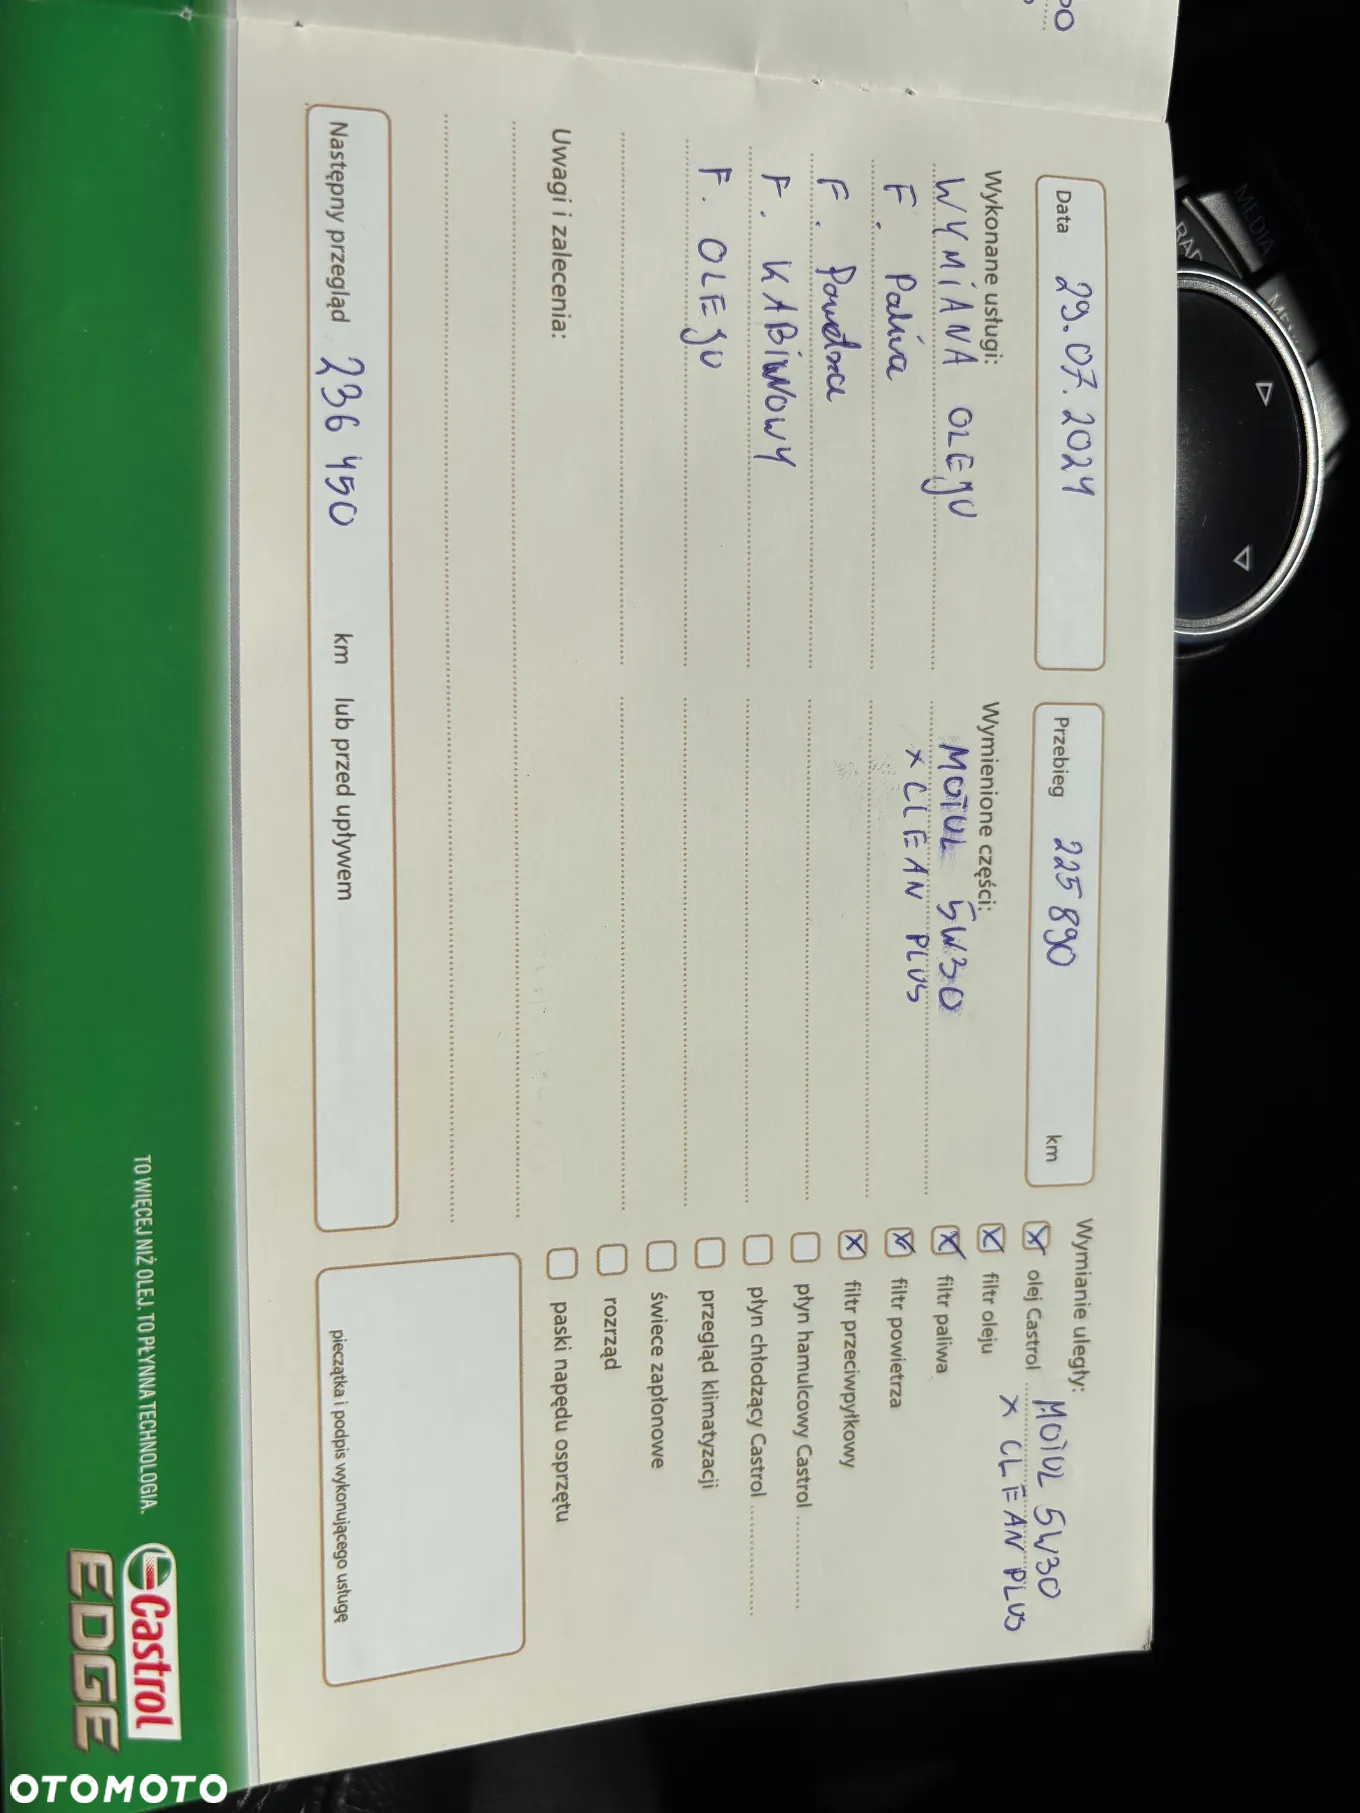 Data 29.07.2024
Przebieg 225 890 km
Wykonane usługi:
WYMIANA OLEJU
F. Paliwa
F. Powietrza
F. KABINOWY
F. OLEJU
Wymienione części:
MOTUL 5W30
X CLEAN PLUS
Wymianie uległy:
olej Castrol MOTUL 5W30
X CLEAN PLUS
filtr oleju
filtr paliwa
filtr powietrza
filtr przeciwpyłkowy
płyn hamulcowy Castrol
płyn chłodzący Castrol
przegląd klimatyzacji
świece zapłonowe
rozrząd
paski napędu osprzętu
Uwagi i zalecenia:
Następny przegląd 236 450 km lub przed upływem
pieczątka i podpis wykonującego usługę
TO WIĘCEJ NIŻ OLEJ. TO PŁYNNA TECHNOLOGIA.
Castrol
EDGE
MEDIA
OTOMOTO